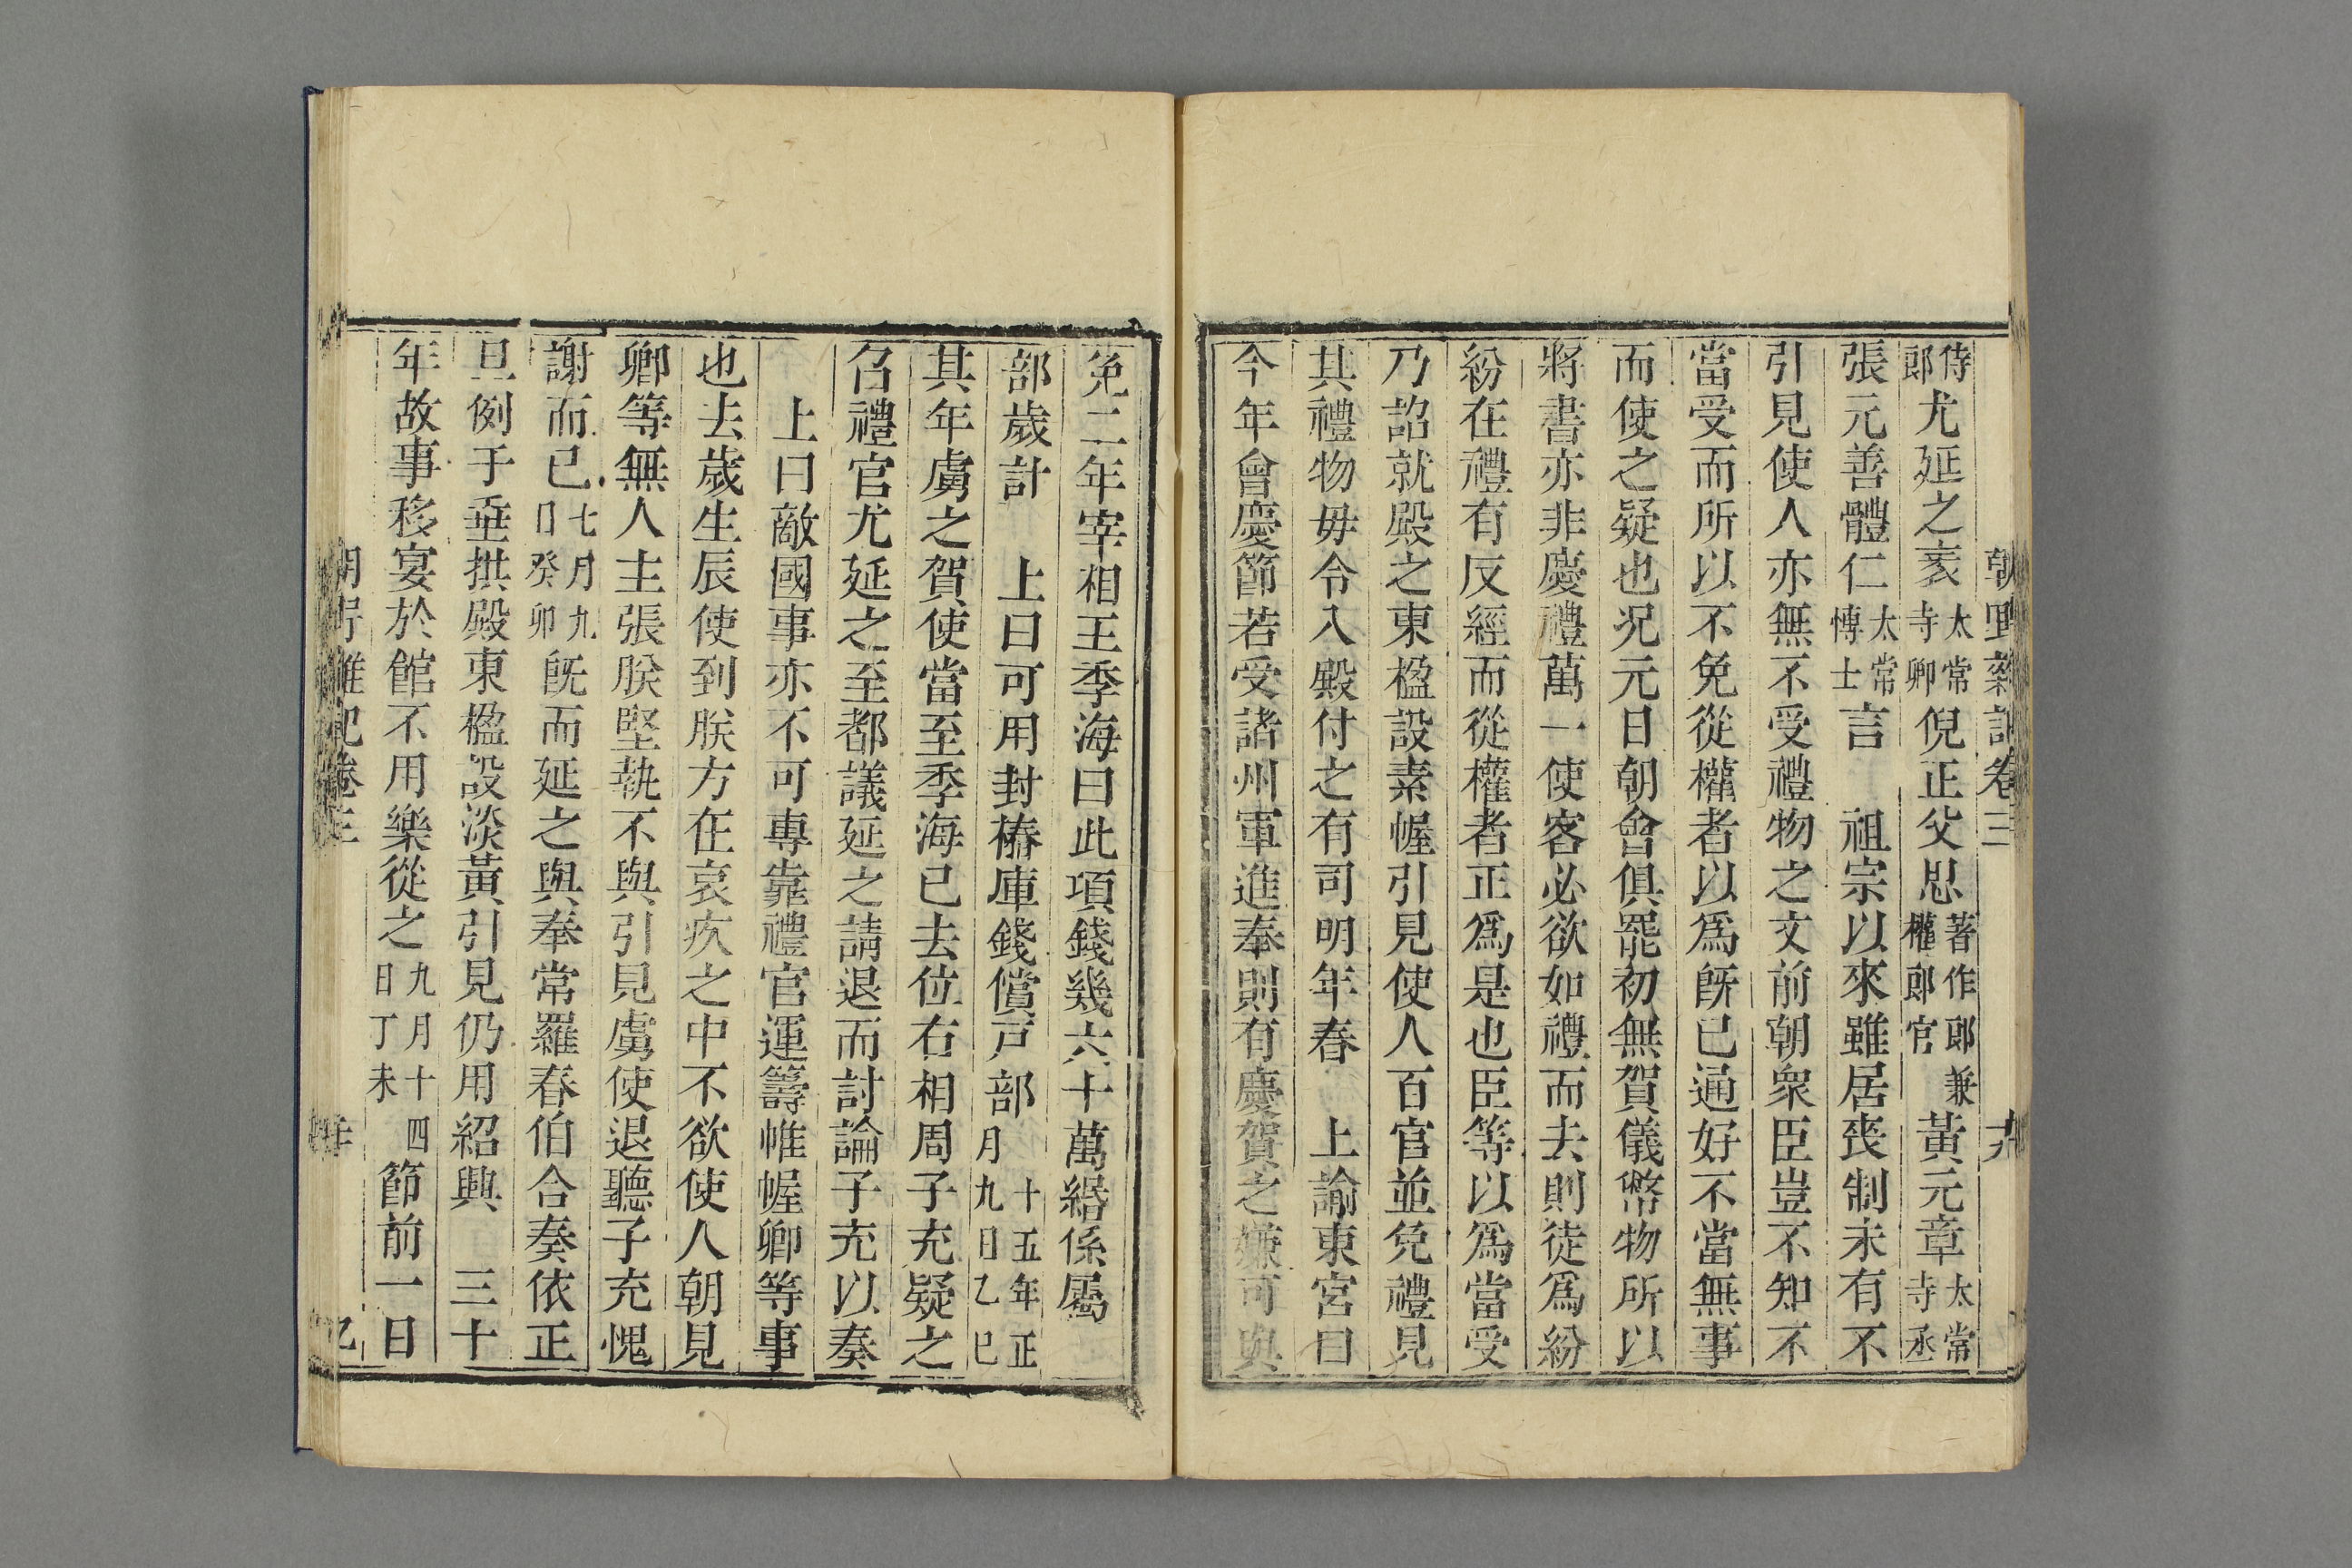 朝野雜記卷三
侍郎尤延之袤太常寺卿倪正父思著作郎兼權郎官黃元章太常寺丞
張元善體仁太常博士言　祖宗以來雖居喪制未有不
引見使人亦無不受禮物之文前朝衆臣豈不知不
當受而所以不免從權者以爲旣已通好不當無事
而使之疑也况元日朝會俱罷初無賀儀幣物所以
將書亦非慶禮萬一使客必欲如禮而去則徒爲紛
紛在禮有反經而從權者正爲是也臣等以爲當受
乃詔就殿之東楹設素幄引見使人百官並免禮見
其禮物毋令入殿付之有司明年春　上諭東宮曰
今年會慶節若受諸州軍進奉則有慶賀之嫌可與
免二年宰相王季海曰此項錢幾六十萬緡係屬
部歲計　上曰可用封樁庫錢償戸部十五年正月九日乙巳
其年虜之賀使當至季海已去位右相周子充疑之
召禮官尤延之至都議延之請退而討論子充以奏
上曰敵國事亦不可專靠禮官運籌帷幄卿等事
也去歲生辰使到朕方在哀疚之中不欲使人朝見
卿等無人主張朕堅執不與引見虜使退聽子充愧
謝而已七月九日癸卯旣而延之與奉常羅春伯合奏依正
旦例于垂拱殿東楹設淡黃引見仍用紹興　三十
年故事移宴於館不用樂從之九月十四日丁未節前一日
朝野雜記卷三